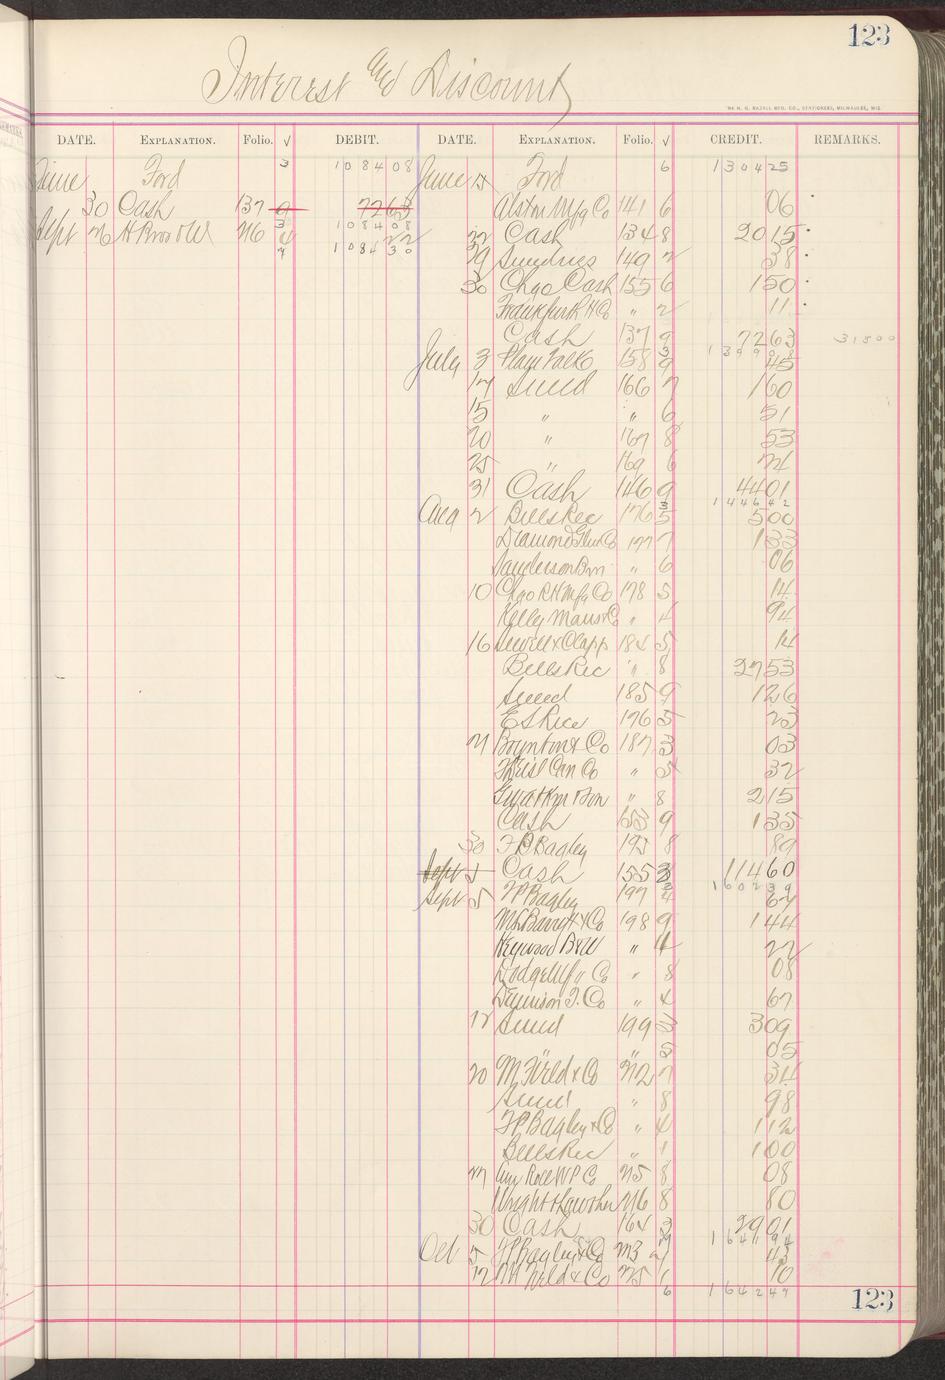 123
Interest and Discount
DATE. EXPLANATION. Folio. √ DEBIT. DATE. EXPLANATION. Folio. √ CREDIT. REMARKS.
June Ford 3 1084 08 June 15 Ford 6 1304 25
30 Cash 137 9 72 63 Alston Mfg Co 141 6 06
Sept 26 216 3 1084 08 22 Cash 134 8 20 15
4 22 29 Sundries 149 2 38
7 1084 30 30 Chgo Cash 155 6 1 50
Frankfurth H Co " 2 11
Cash 137 9 72 63 318 00
3 1399
July 3 158 9 45
17 Sund 166 7 1 60
15 " " 6 51
20 " 167 8 53
25 " 169 6 24
31 Cash 146 9 44 01
3 1446 42
Aug 2 Bills Rec 176 5 5 00
Diamond Glue Co 177 7 1 33
Sanderson Bros " 6 06
10 Chgo R H Mfg Co 178 5 14
Kelly Maus & Co " 4 94
16 Sewell & Clapp 184 5 14
Bills Rec " 8 27 53
Sund 185 9 1 26
E S Rice 176 5 23
21 Boynton & Co 187 3 03
Can Co " 5 32
" 8 2 15
Cash 153 9 1 35
30 F P Bagley 193 8 89
Sept 5 Cash 155 3 114 60
2 1602 39
Sept 5 F P Bagley 197 4 67
M L Barrett & Co 198 9 1 44
Heywood B & W " 4 22
Dodge Mfg Co " 8 08
Dennison T. Co " 4 67
12 Sund 199 3 3 09
" 5 05
20 M Field & Co 212 7 34
Sund " 8 98
F P Bagley & Co " 4 1 12
Bills Rec " 1 1 00
27 Am Roll W P Co 215 8 08
216 8 80
30 Cash 164 3 29 01
7 1641 94
Oct 5 F P Bagley & Co 223 7 43
12 & Co 225 1 10
6 1642 47
123